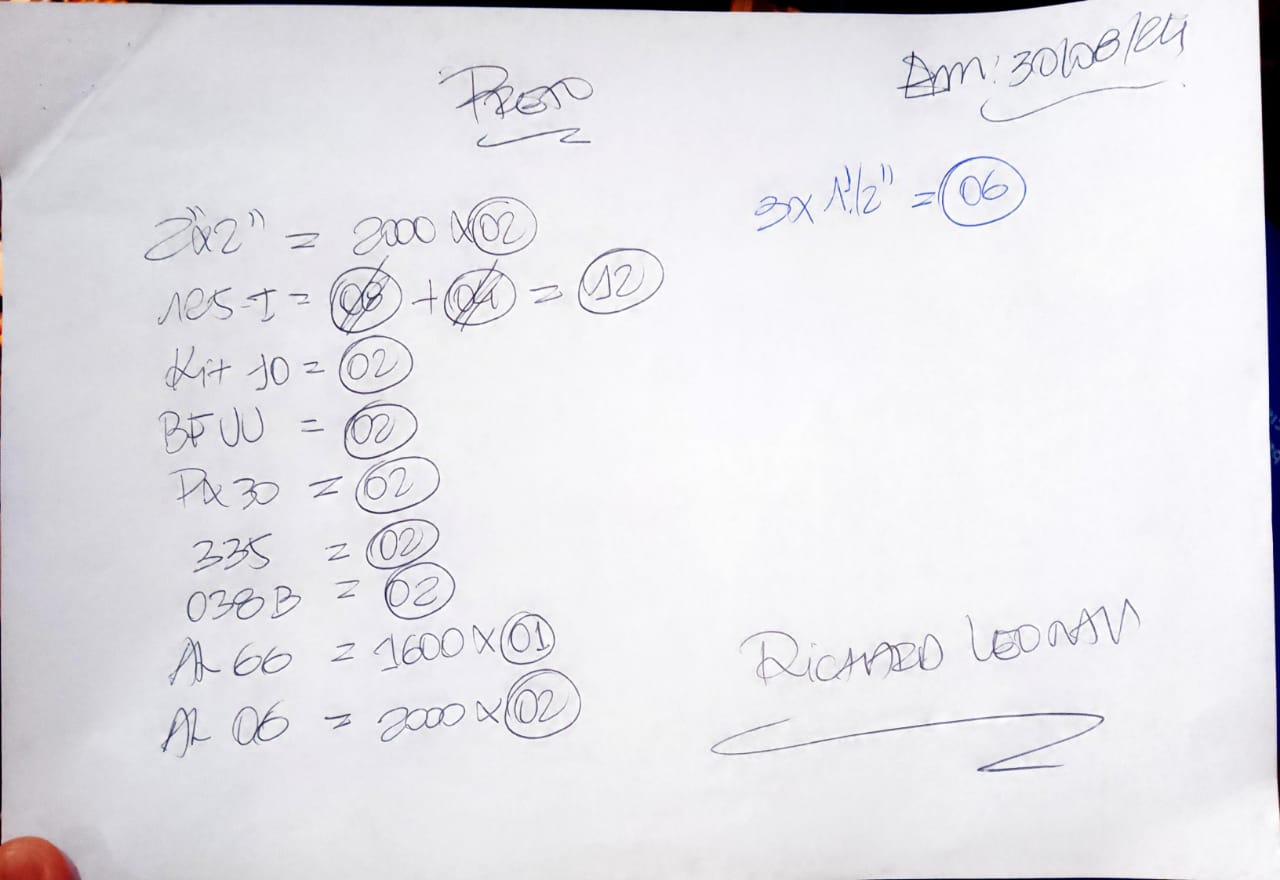 PRETO
Am: 30/08/24
2"x2" = 2000 x 02
3x 1.1/2" = 06
185-I = 08 + 04 = 12
Kit 10 = 02
BFVV = 02
PX30 = 02
335 = 02
038B = 02
AL 66 = 1600 x 01
AL 06 = 2000 x 02
RICHARD LEONAN